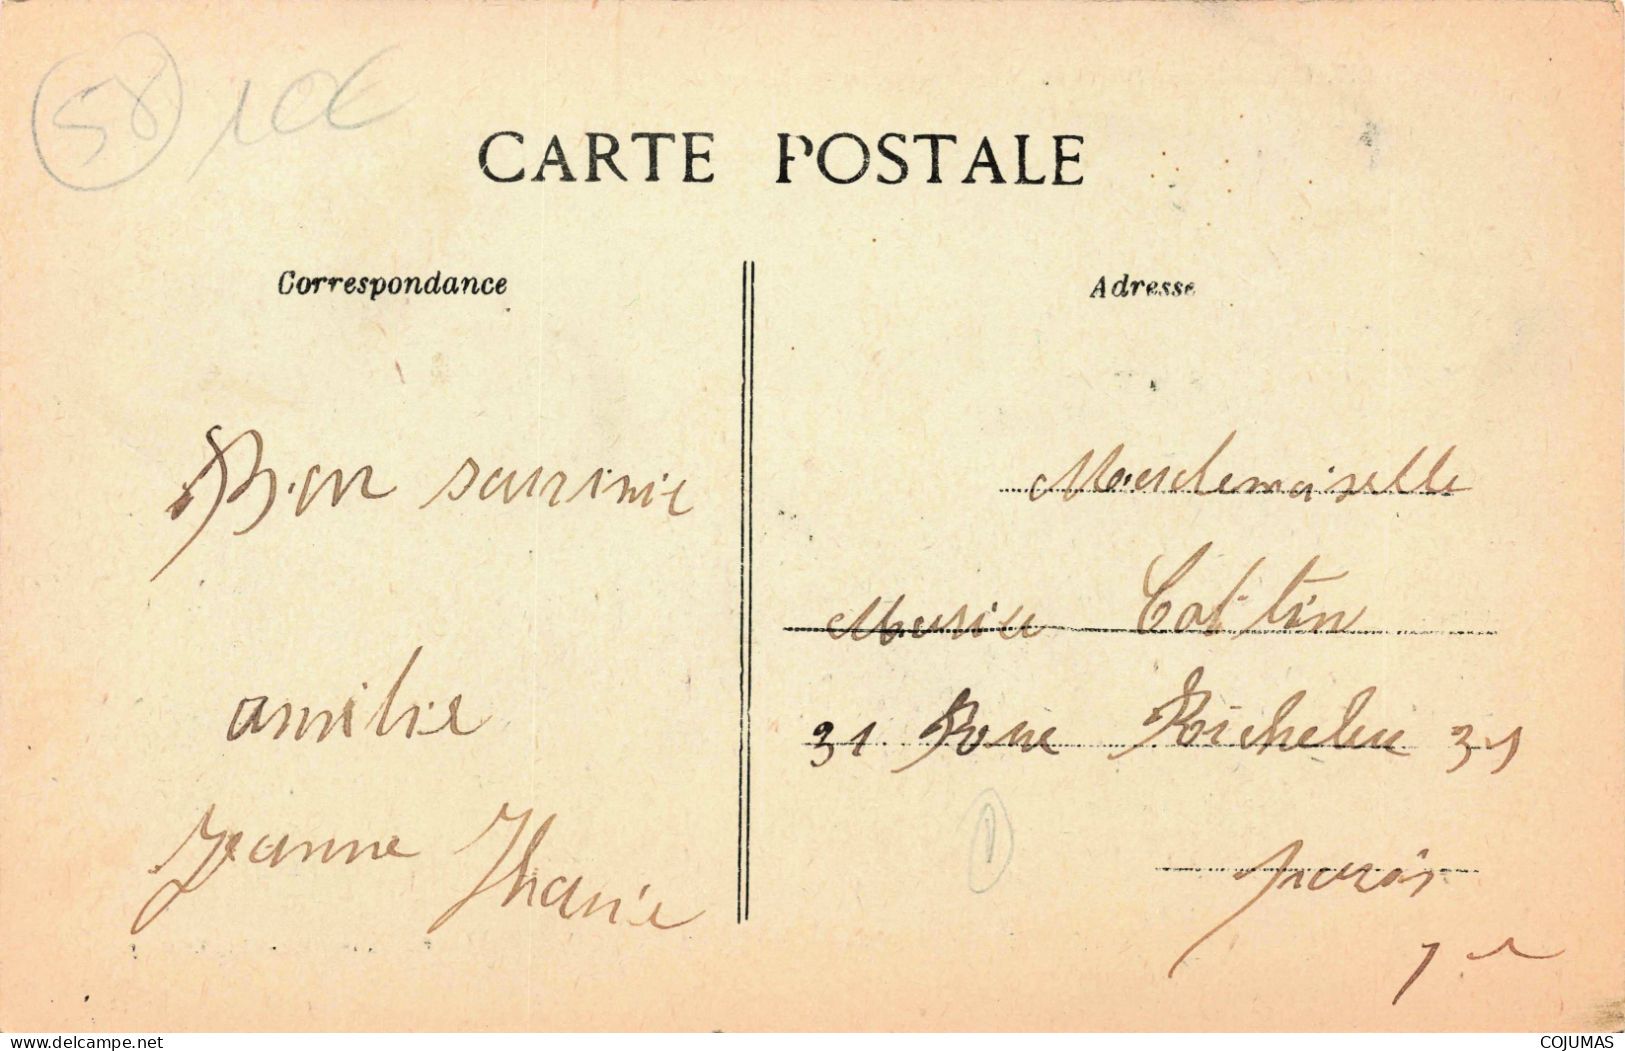 58 10€
CARTE POSTALE
Correspondance
Adresse
Bon souvinie
amitie
Jeanne
Mademoiselle
31 Rue Richelieu 31
Paris
www.delcampe.net
COJUMAS